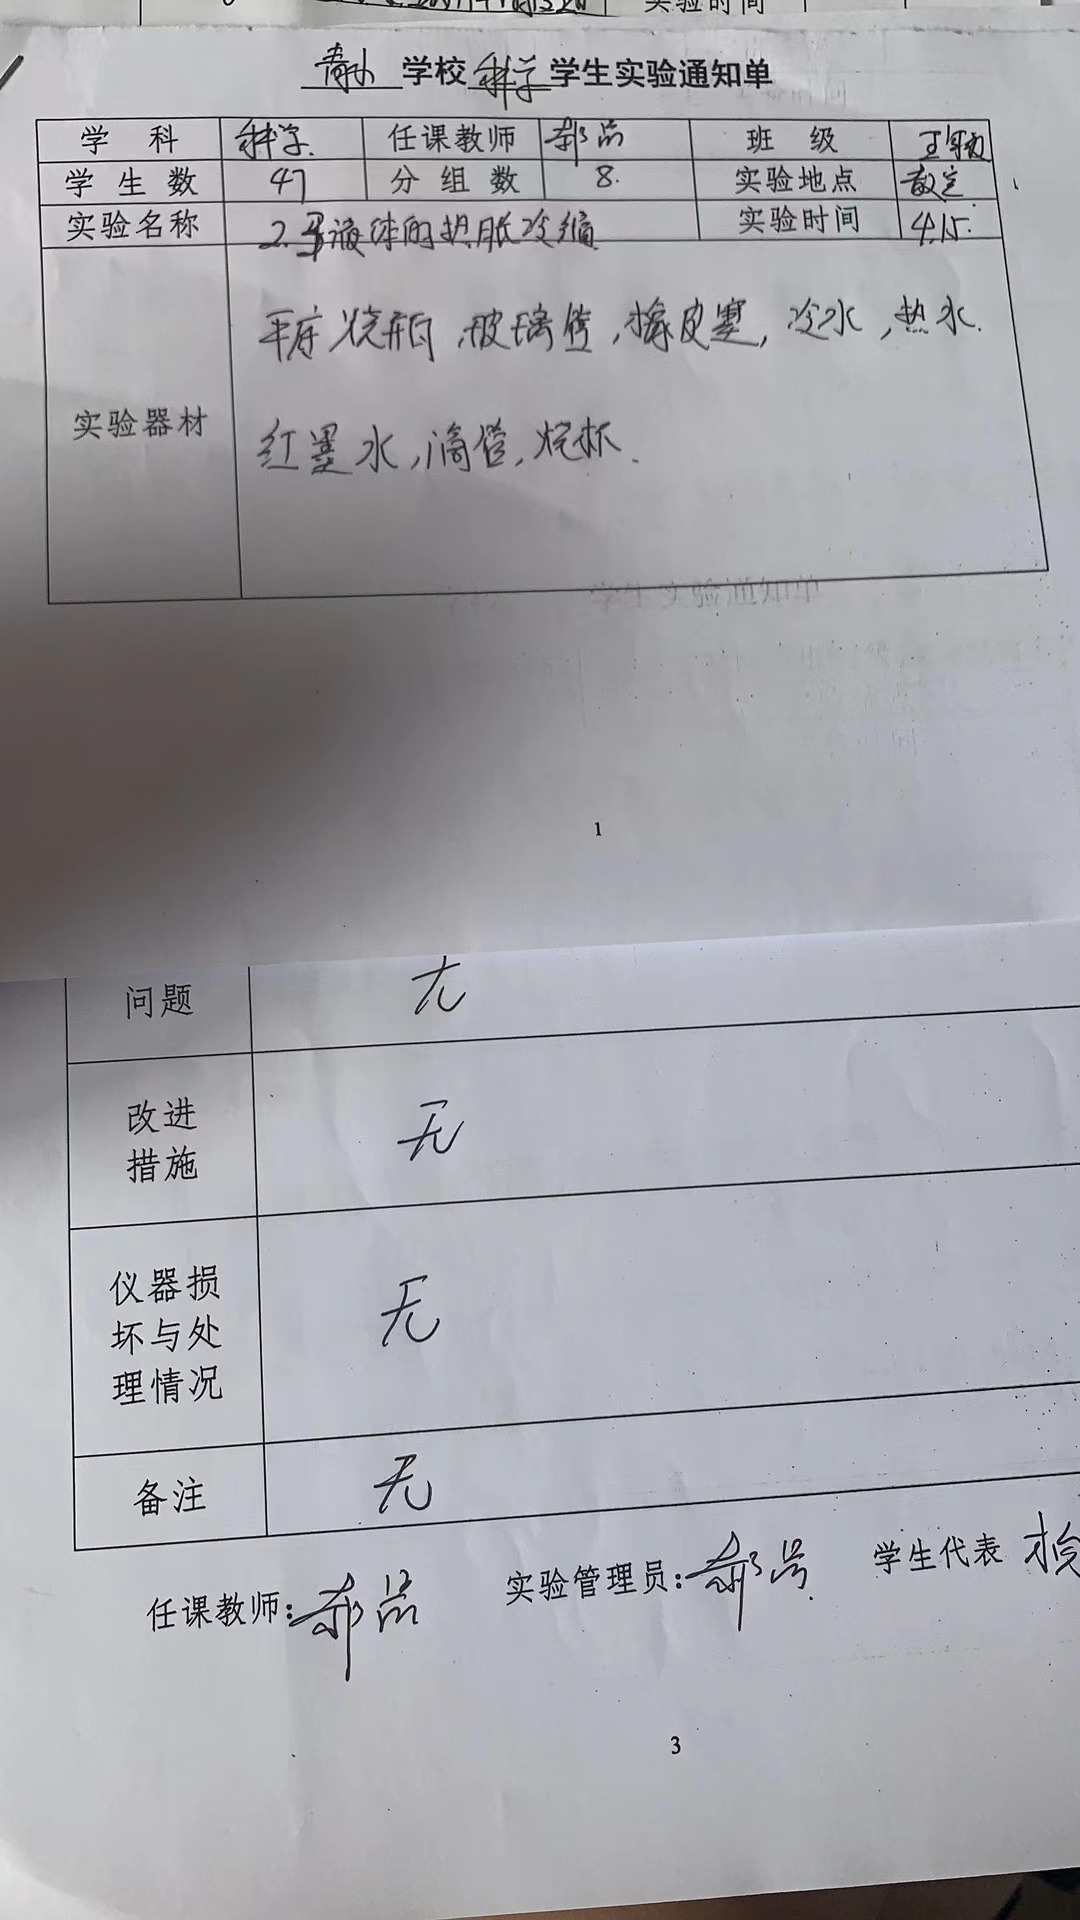 实验时间
学校 科学 学生实验通知单
学 科 科学. 任课教师 郝 班 级
学生数 47 分组数 8. 实验地点 教室
实验名称 2.液体的热胀冷缩 实验时间 4.15.
平底烧瓶,玻璃管,橡皮塞,冷水,热水.
实验器材
红墨水,滴管,烧杯.
1
问题 无
改进 无
措施
仪器损 无
坏与处
理情况
备注 无
任课教师: 郝 实验管理员: 郝 学生代表
3